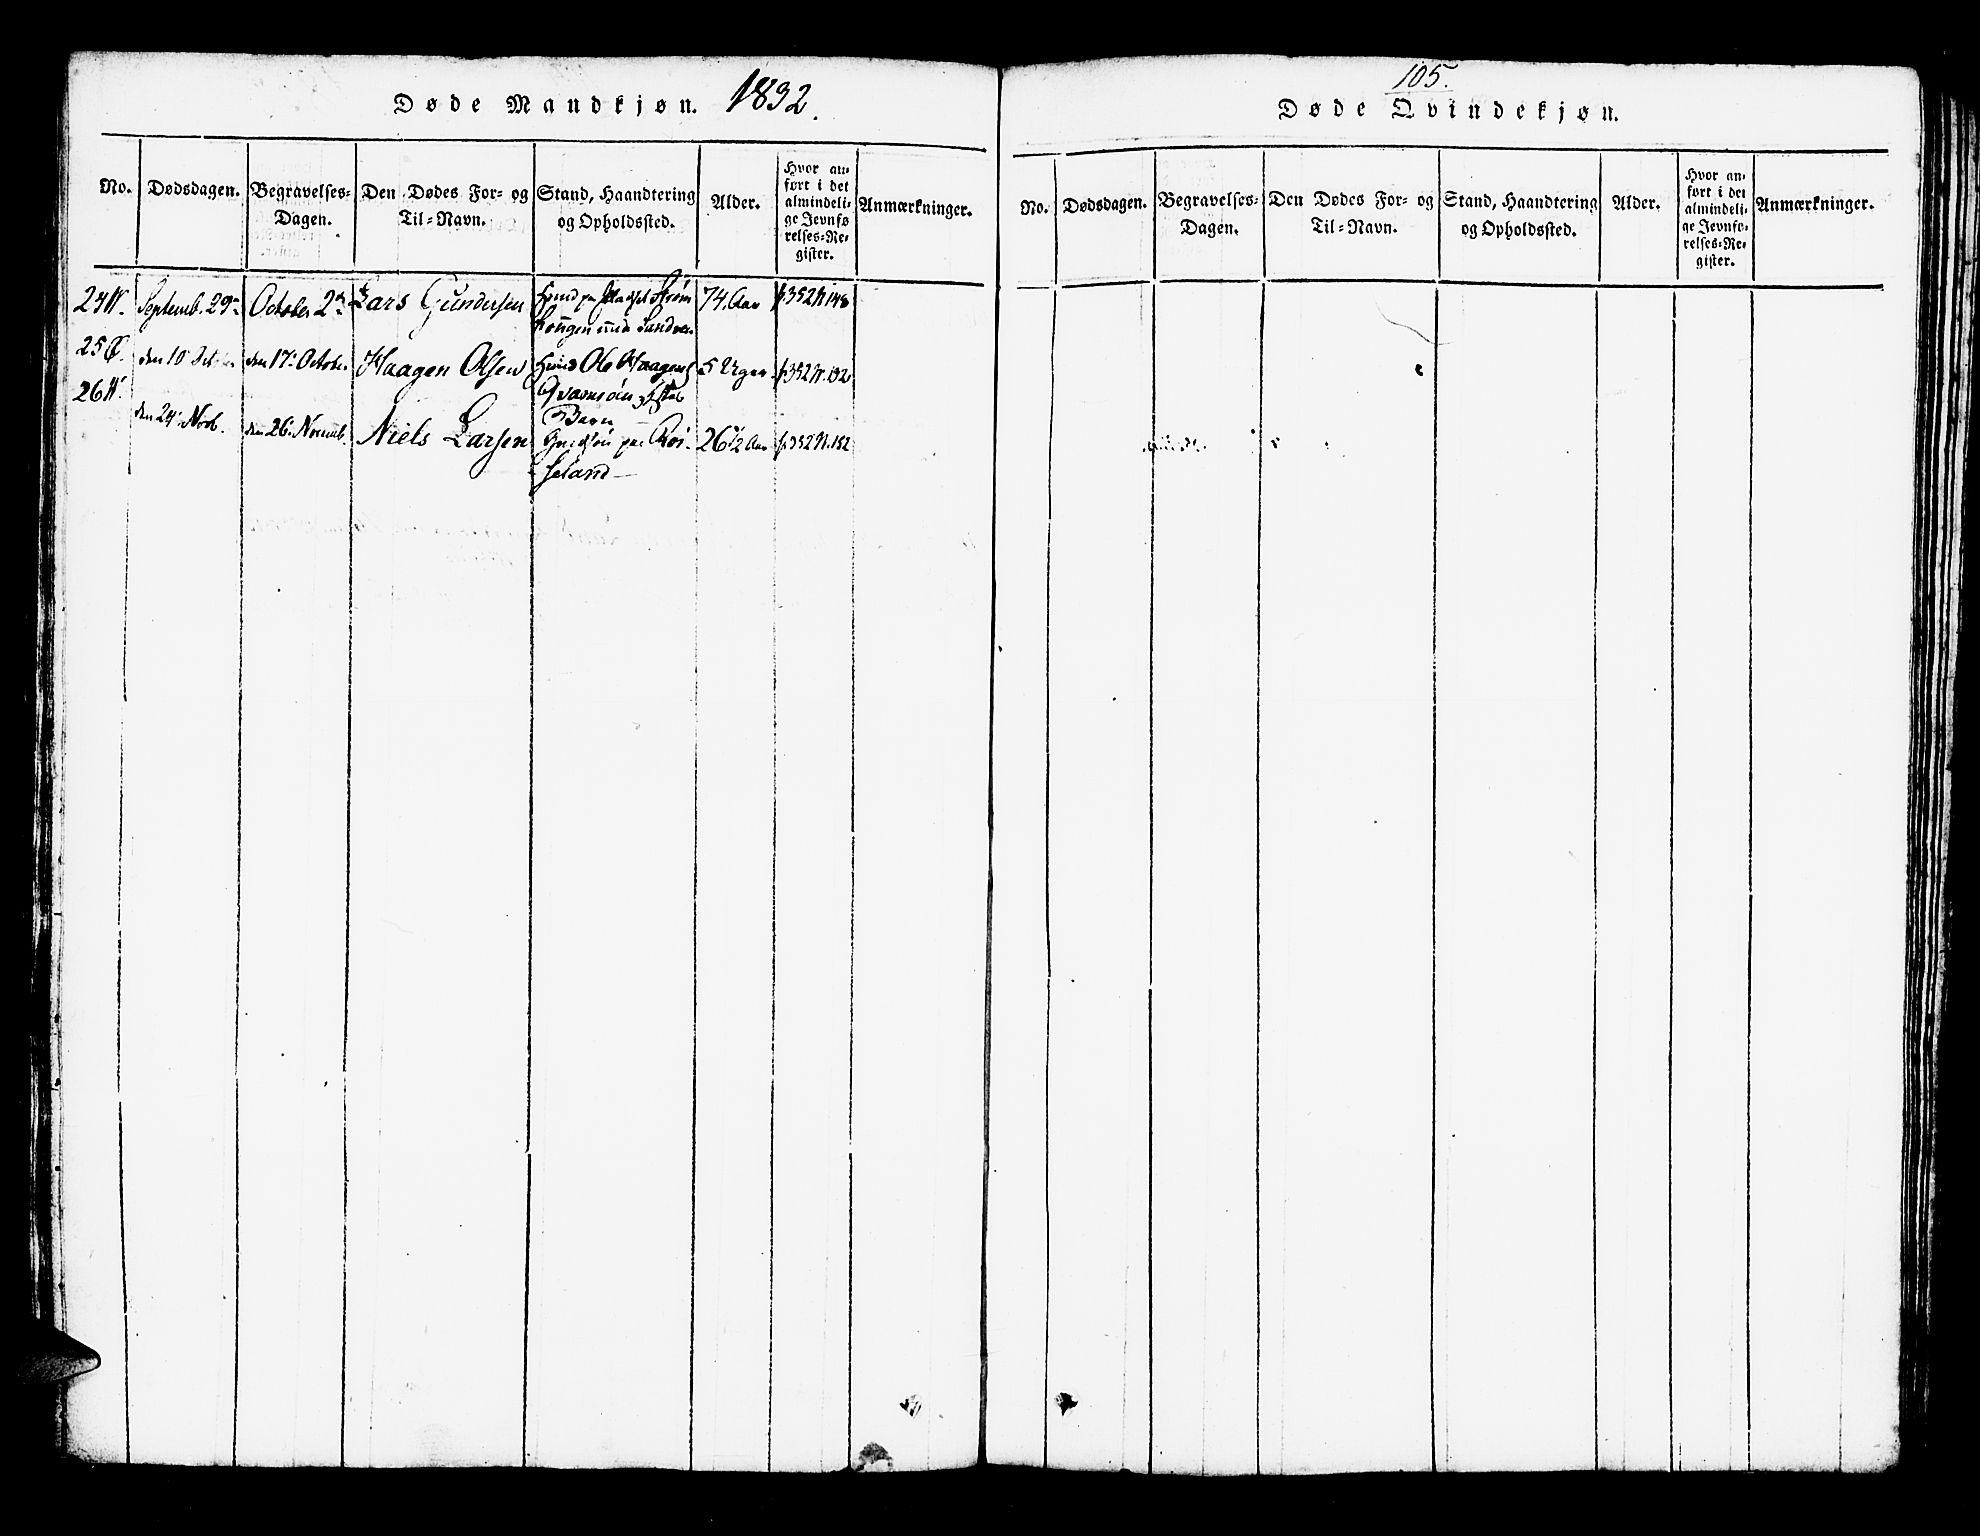 Døde Mandkjøn. 1832.
No.
Dødsdagen.
Begravelses-
Dagen.
Den Dødes For- og
Til-Navn.
Stand, Haandtering
og Opholdssted.
Alder.
Hvor an-
ført i det
almindeli-
ge Jevnfø
relses-Re-
gister.
Anmærkninger.
24 N. Septemb. 29de October 2den Lars Gundersen
74 Aar f 352 N 148
25 den 10 den 17de October Haagen Olsen Ole Haagens 5 Uger f 352 N. 132
Barn
26 N. den 24 Novb. den 26 Novemb. Niels Larsen paa 26 1/2 Aar f 352 N. 152
seland
105.
Døde Qvindekjøn.
No.
Dødsdagen.
Begravelses-
Dagen.
Den Dødes For- og
Til-Navn.
Stand, Haandtering
og Opholdssted.
Alder.
Hvor an-
ført i det
almindeli-
ge Jevnfø-
relses-Re-
gister.
Anmærkninger.